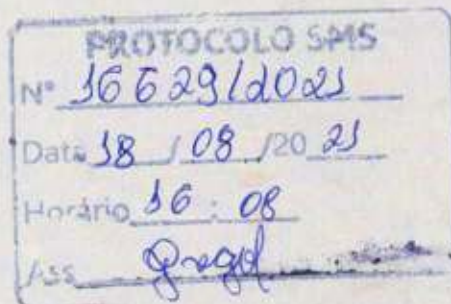 PROTOCOLO SMS
Nº 16629/2021
Data 18 / 08 /20 21
Horário 16 : 08
Ass